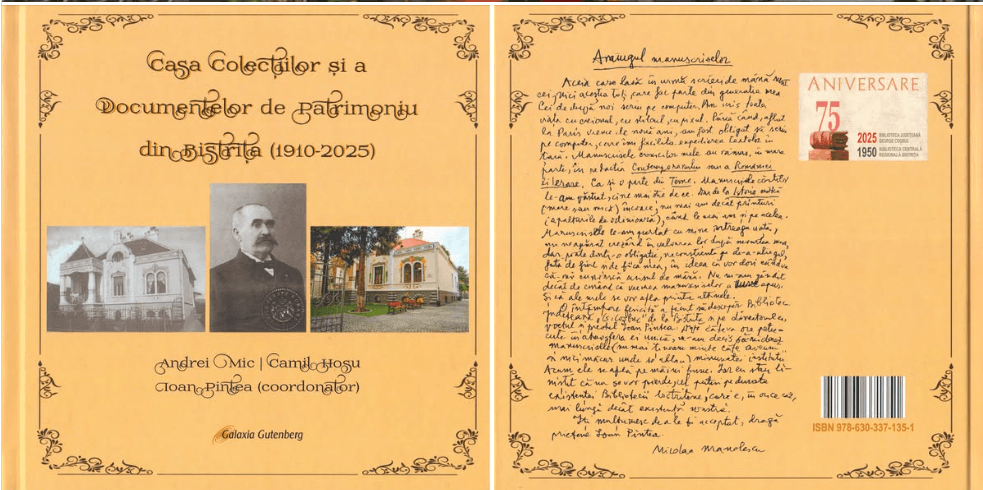 Casa Colecțiilor și a
Documentelor de Patrimoniu
din Bistrița (1910-2025)
Andrei Mic | Camil Hosu
Ioan Pintea (coordonator)
Galaxia Gutenberg
Amurgul manuscriselor
Aceia care lasă în urmă scrieri de mână sunt
cei mici acestia toți care fac parte din generația mea
Cei de după noi scriu pe computer. Am scris toată
viața cu creionul, cu stiloul, cu pixul. Până când, aflat
la Paris vreme de nouă ani, am fost obligat să scriu
pe computer, care îmi facilita expedierea textelor în
țară. Manuscrisele cronicilor mele au rămas, în mare
parte, în redacția Contemporanului sau a României
literare. Ca și o parte din Teme. Manuscrisele cărților
le-am păstrat, cine mai știe de ce. Dar de la Istoria critică
(mare sau mică) încoace, nu mai am decât printuri
Manuscrisele le-am purtat cu mine întreaga viață,
nu neapărat crezând în valoarea lor după moartea mea,
dar, poate dintr-o obligație,
față de fiul și de fiica mea, în ideea că vor dori cândva
că vremea manuscriselor a apus.
Și că ale mele se vor afla printre ultimele.
O întâmplare fericită a făcut să descopăr Biblioteca
Județeană "G. Coșbuc" de la Bistrița și pe directorul ei,
poetul și preotul Ioan Pintea. După câteva ore petre-
cute în atmosfera ei unică, m-am decis să-i donez
manuscrisele (nu mai țineam minte câte aveam
și nici măcar unde se află...) minunatei instituții.
Acum ele se află pe mâini bune. Iar eu stau li-
niștit că nu se vor pierde, cel puțin pe durata
existenței Bibliotecii bistrițene, care e, în orice caz,
mai lungă decât existența noastră.
Îți mulțumesc de a le fi acceptat, dragă
părinte Ioan Pintea.
Nicolae Manolescu
ANIVERSARE
75
2025 BIBLIOTECA JUDEȚEANĂ
GEORGE COȘBUC
1950 BIBLIOTECA CENTRALĂ
REGIONALĂ BISTRIȚA
ISBN 978-630-337-135-1